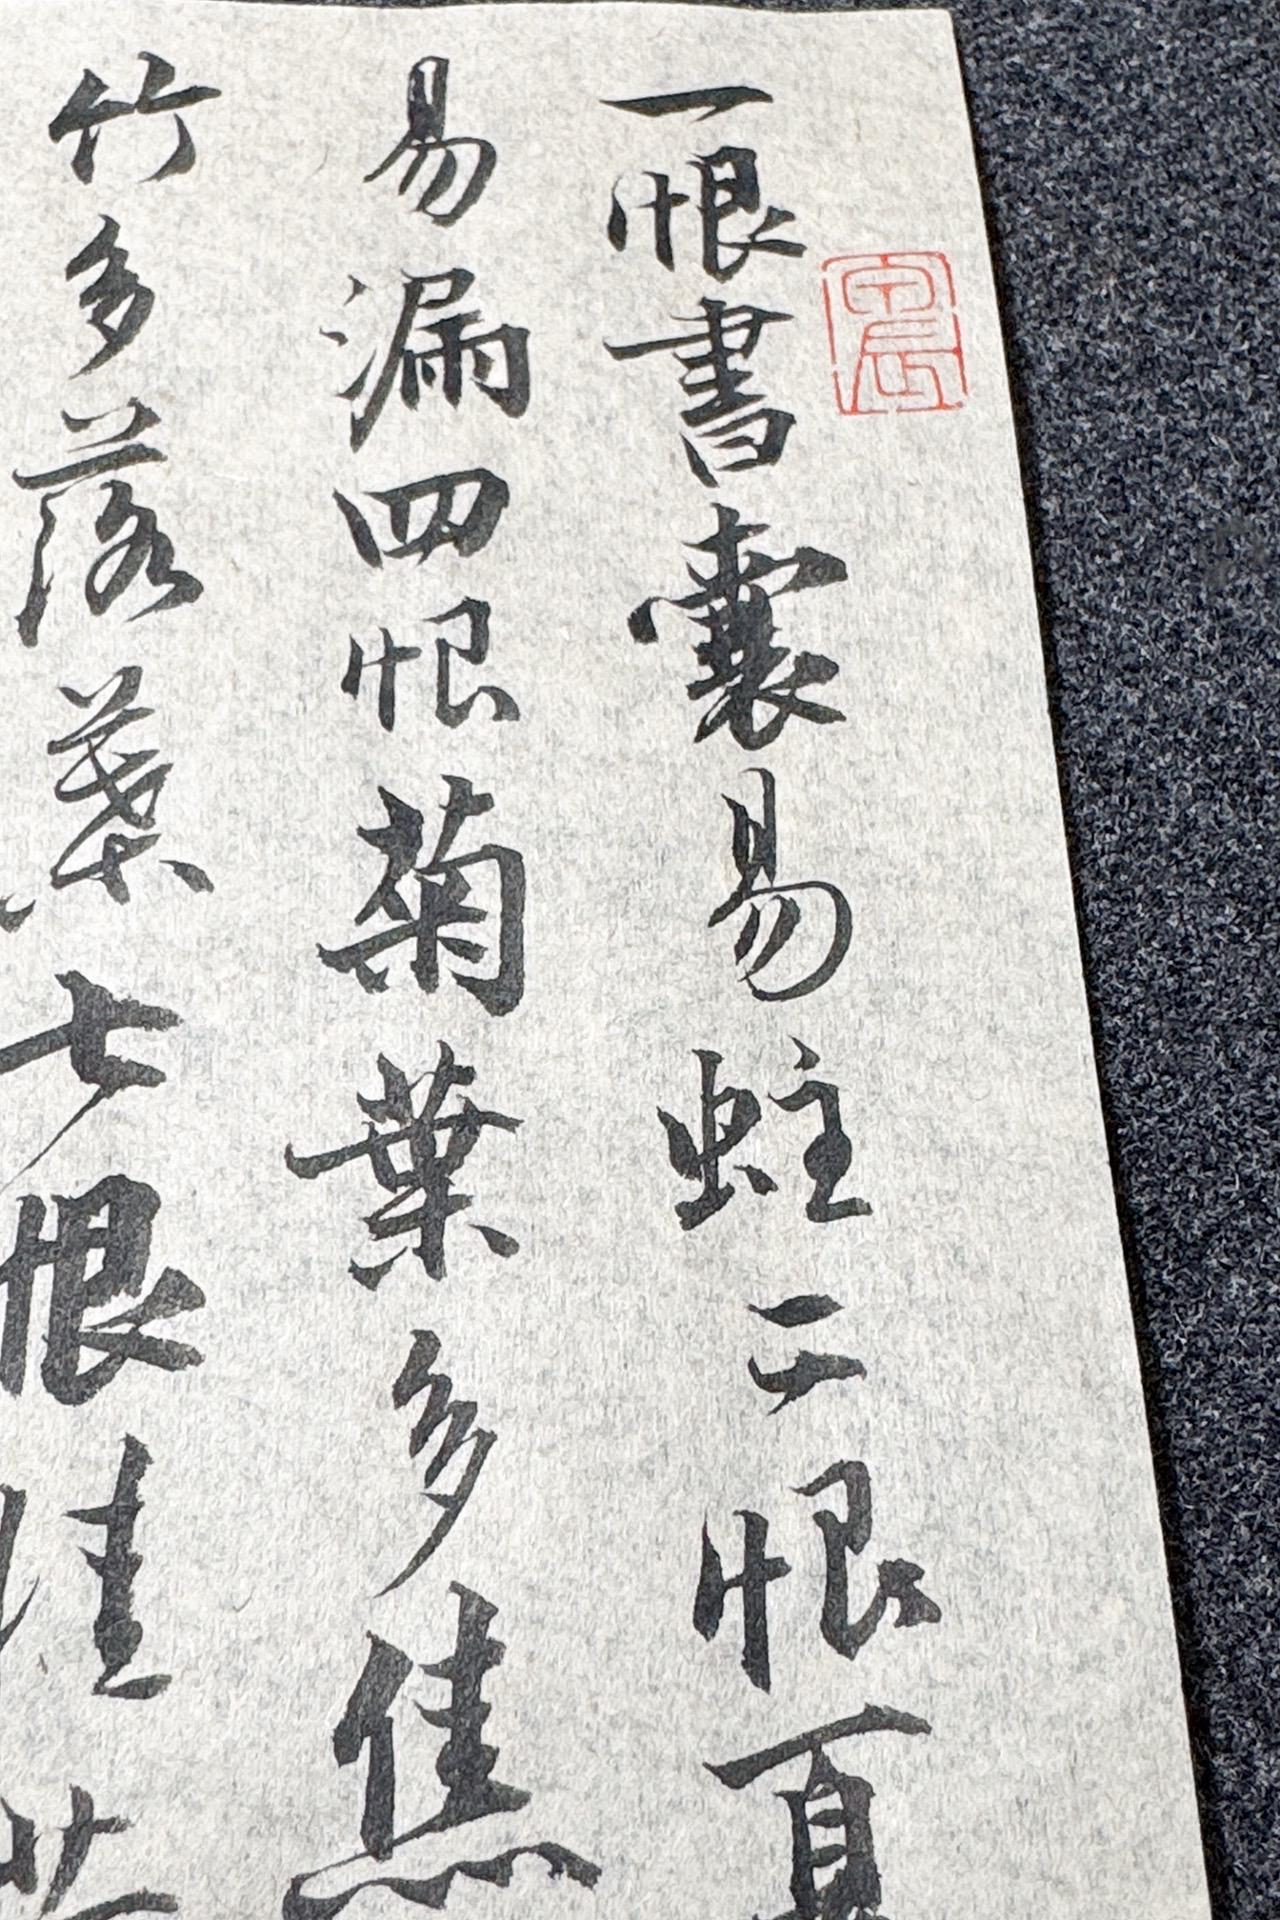 一恨書囊易蛀二恨夏
易漏四恨菊葉多焦
竹多落葉七恨桂